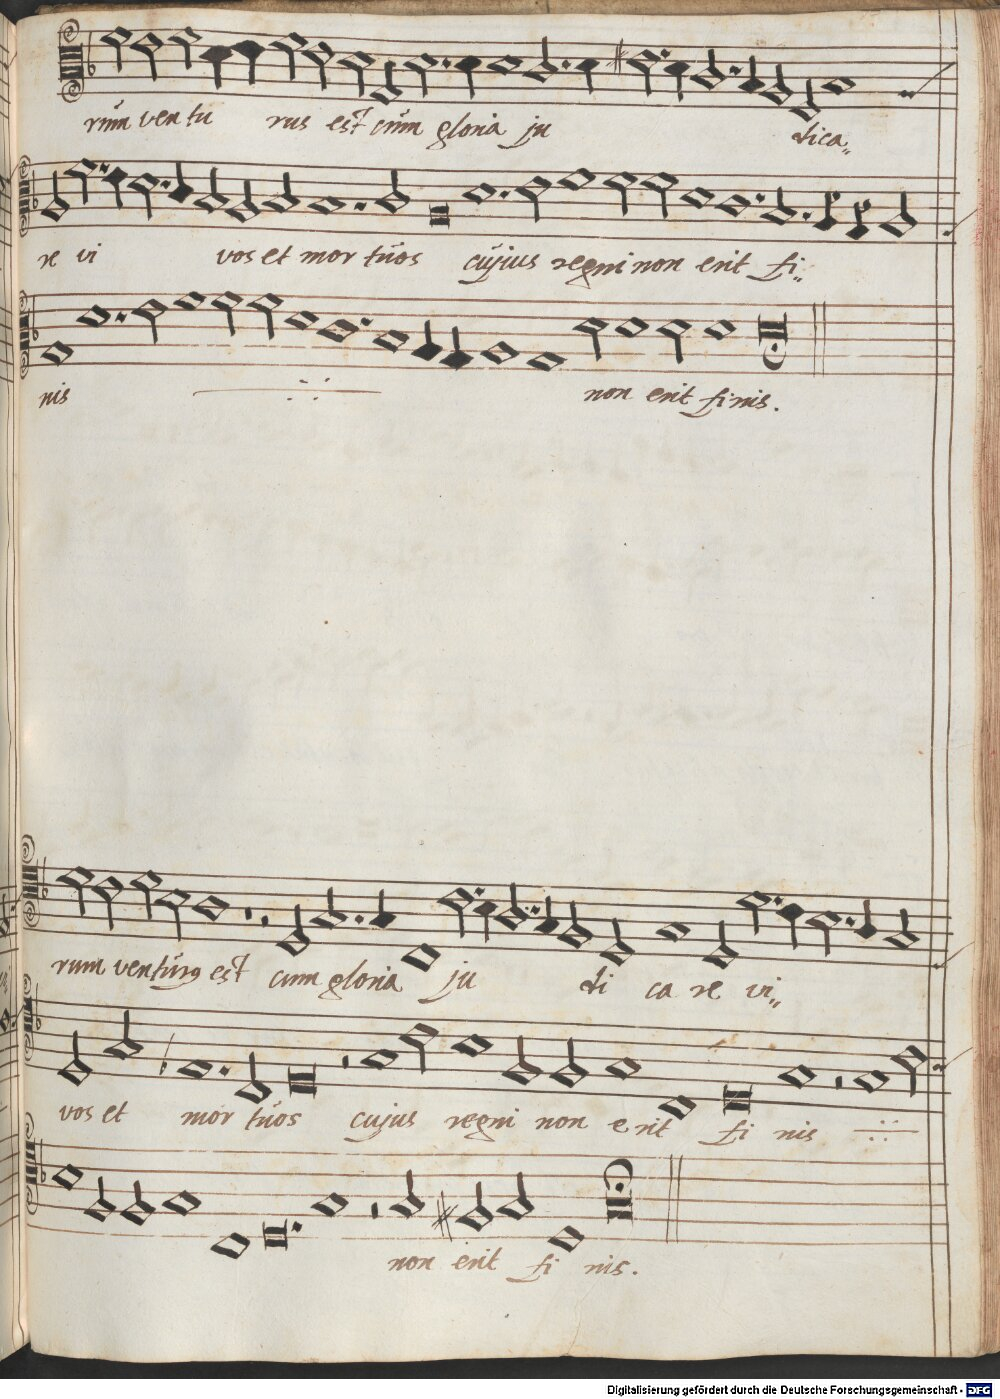 rum ventu rus est cum gloria ju dica„
re vi vos et mortuos cujus regni non erit fi„
nis non erit finis.
rum venturꝰ est cum gloria ju di ca re vi„
vos et mortuos cujus regni non erit fi nis
non erit fi nis.
Digitalisierung gefördert durch die Deutsche Forschungsgemeinschaft - DFG